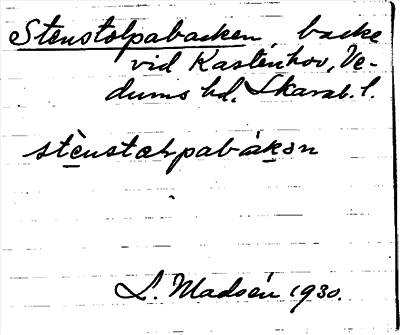 Stenstolpabacken, backe
vid Kastenhov, Ve-
dums sd. Skarab. l.
stènstɶlpabàkən
L. Madsén 1930.